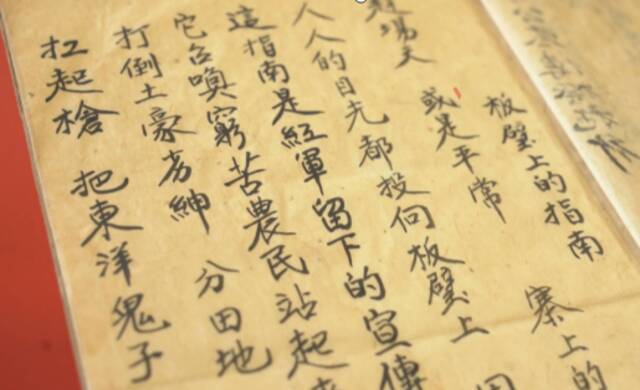 板壁上的指南
場天 或是平常 寨上
人人的目光都投向板壁上
這指南是紅軍留下的宣傳
它召喚窮苦農民站起
打倒土豪劣紳 分田地
扛起槍 把東洋鬼子